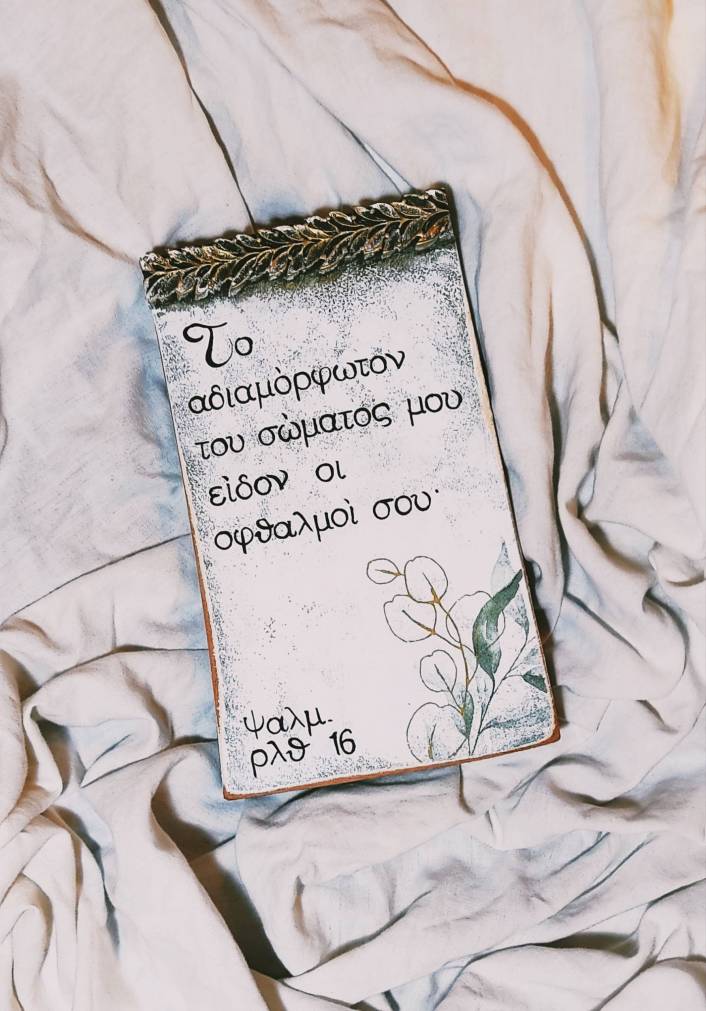 Το
αδιαμὸρφωτον
του σὼματος μου
εἰδον οι
οφθαλμοὶ σου·
ψαλμ.
ρλθ 16